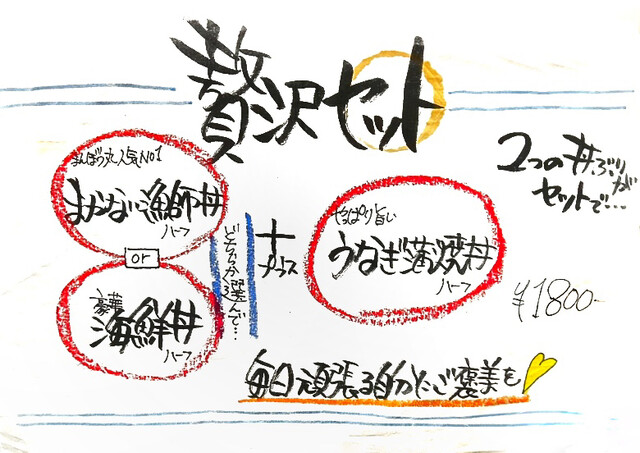 贅沢セット
2つの丼ぶりが
セットで…
まんぼう丸人気No1
まかない漁師丼
ハーフ
or
豪華
海鮮丼
ハーフ
どちらか選んで…
＋
プラス
やっぱり旨い
うなぎ蒲焼丼
ハーフ
¥1800-
毎日頑張る自分にご褒美を